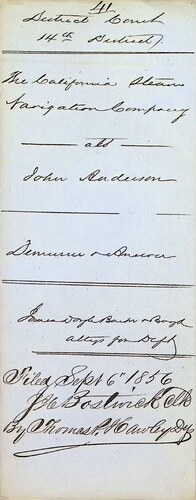 41
District Court
14th District
The California Steam
Navigation Company
ats
John Anderson
Demurrer & Answer
Attys for Deft
Filed Sept 6th 1856
J H Bostwick Clk
By Thomas P. Hawley Dy